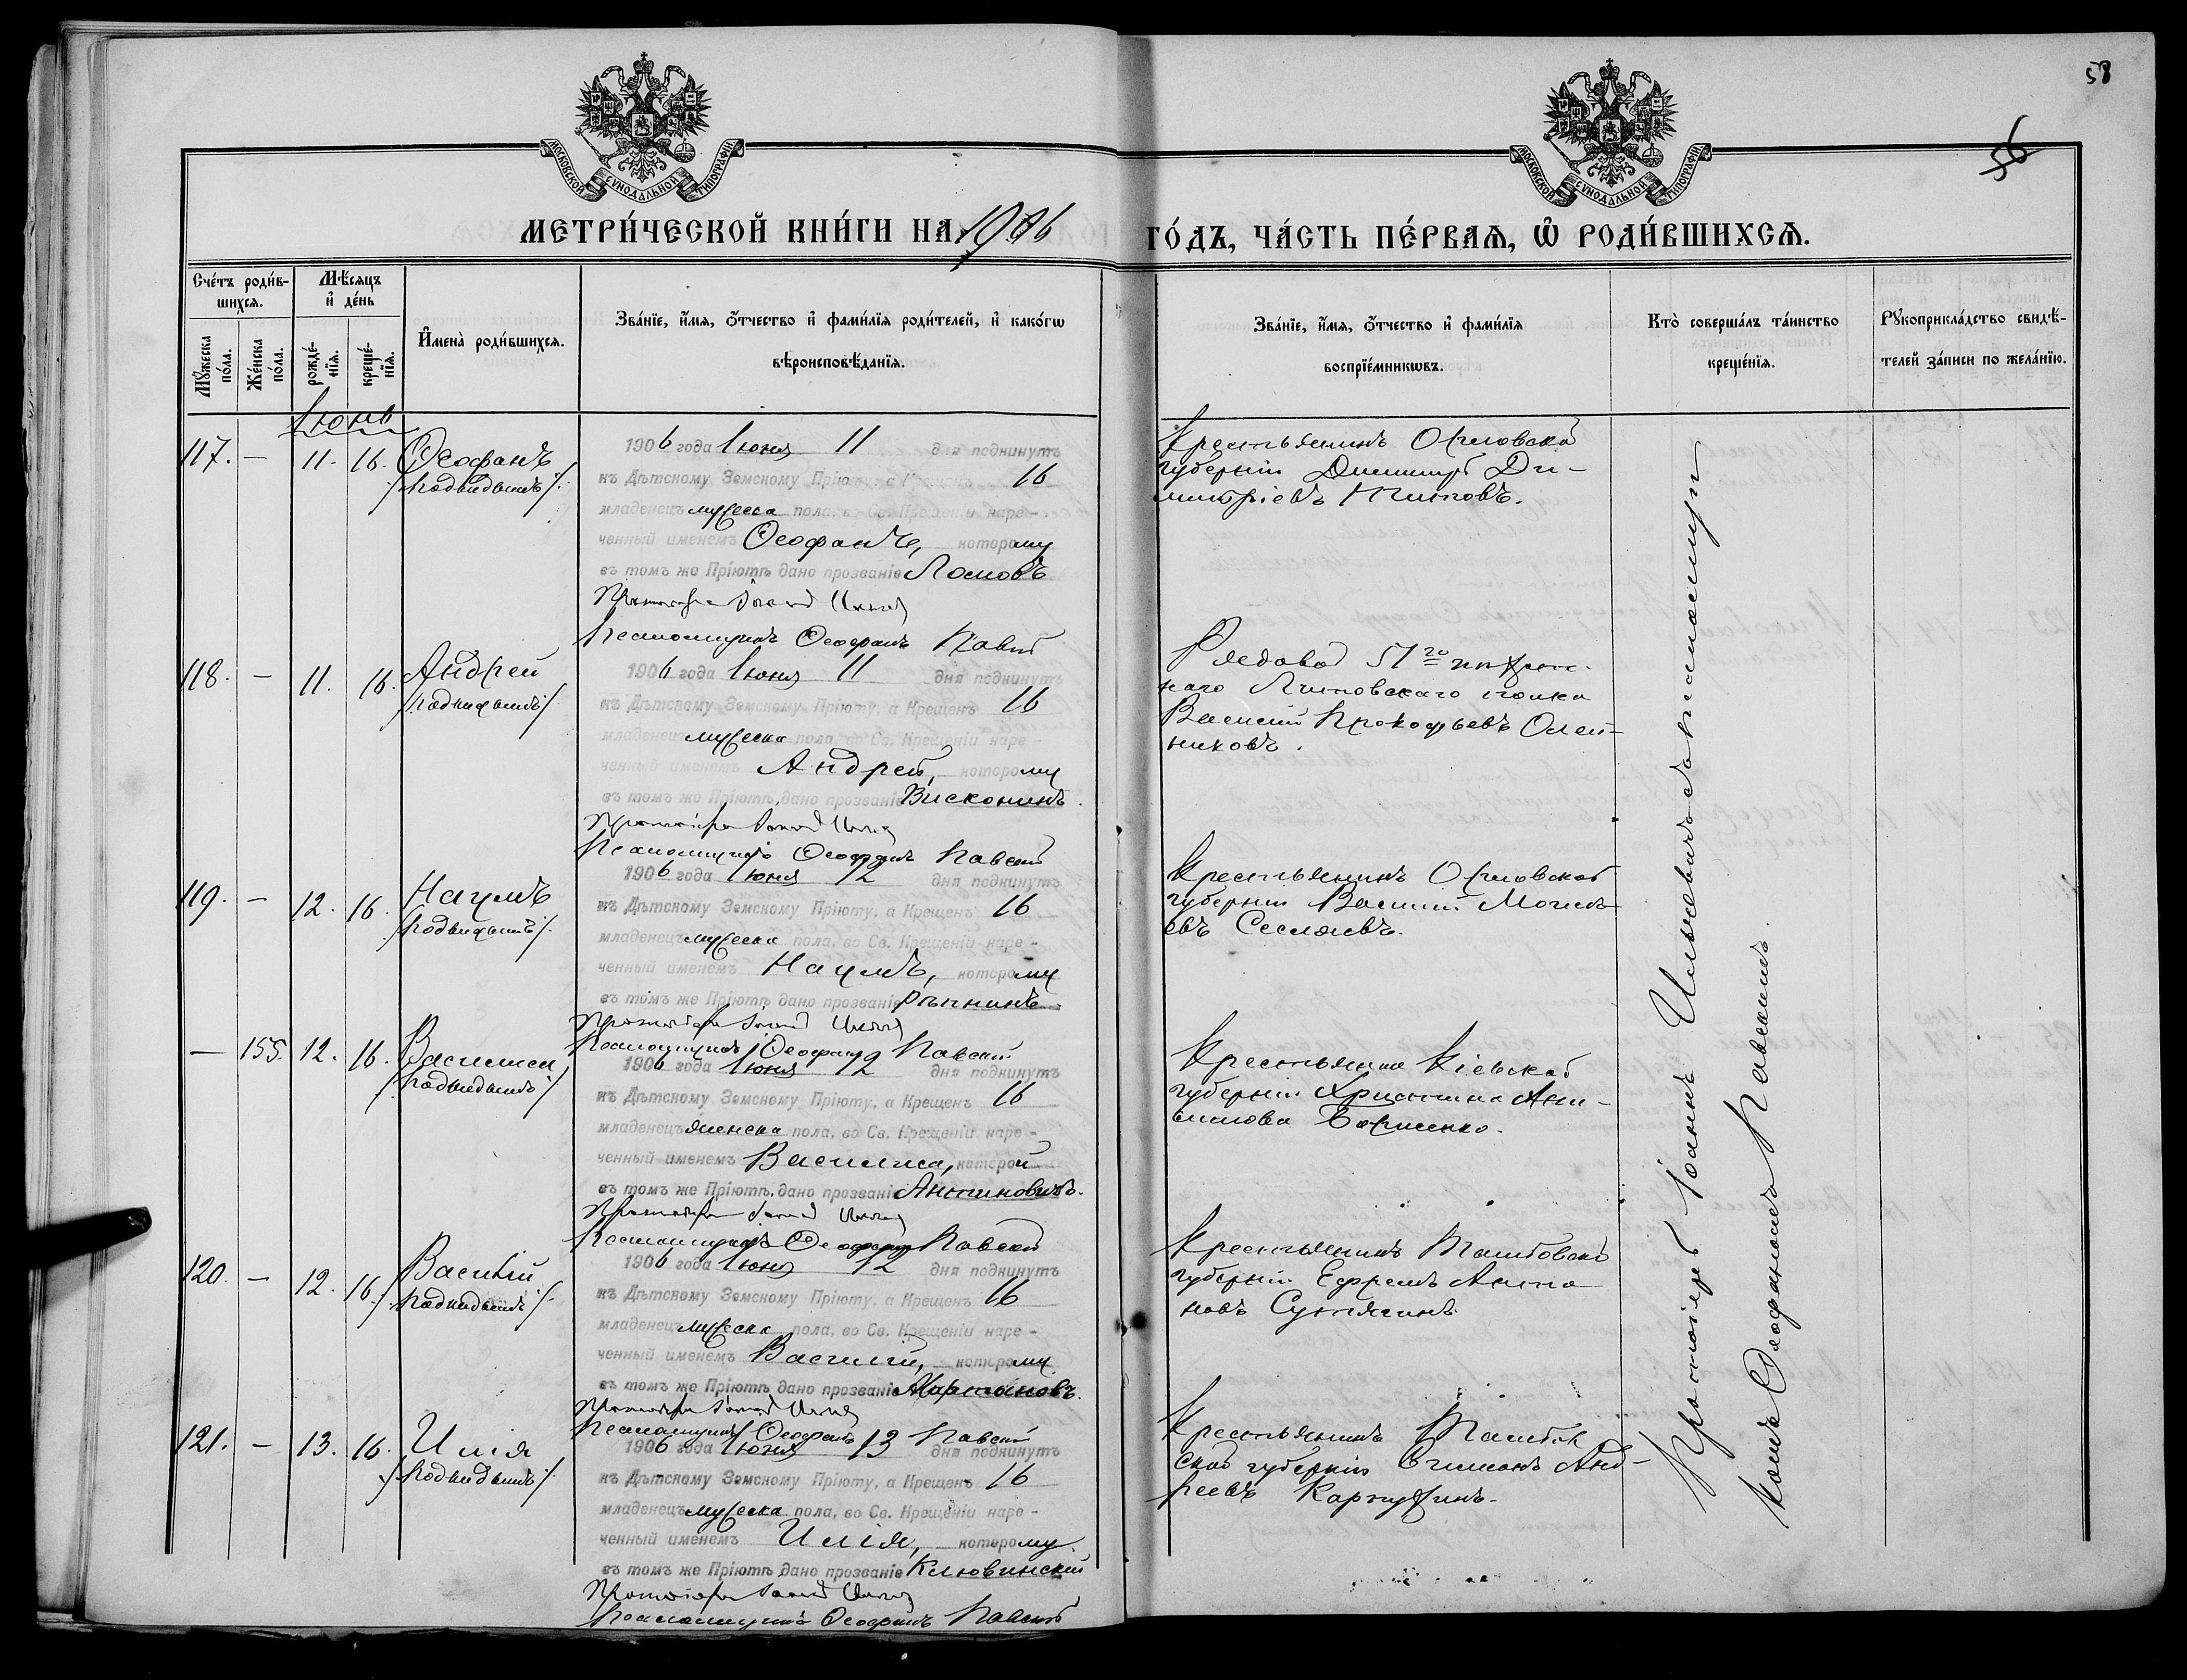 58
56
МОСКОВСКОЙ СѴНОДАЛЬНОЙ ТИПОГРАФІИ
МОСКОВСКОЙ СѴНОДАЛЬНОЙ ТИПОГРАФІИ
МЕТРИ́ЧЕСКОЙ КНИ́ГИ НА 1906 ГО́ДЪ, ЧА́СТЬ ПЕ́РВАѦ, Ѽ РОДИ́ВШИХСѦ.
Сче́тъ роди́в-
шихсѧ.
Мѣ́сѧцъ
и҆ де́нь
Мꙋ́жеска
по́ла.
Же́нска
по́ла.
рожде́-
нїѧ.
креще́-
нїѧ.
И҆мена̀ роди́вшихсѧ.
Зва́нїе, и҆́мѧ, ѻ҆́тчество и҆ фами́лїѧ роди́телей, и҆ како́гѡ
вѣроисповѣ́данїѧ.
Зва́нїе, и҆́мѧ, ѻ҆́тчество и҆ фами́лїѧ
воспрїе́мникѡвъ.
Кто̀ соверша́лъ та́инство
креще́нїѧ.
Рꙋкоприкла́дство свидѣ́-
телей за́писи по жела́нїю.
Іюнь
117. — 11. 16. Ѳеофанъ
/Подкидышъ/.
1906 года Іюня 11 дня подкинутъ
къ Дѣтскому Земскому Пріюту, а Крещенъ 16
младенецъ мужеска пола, во Св. Крещеніи наре-
ченный именемъ Ѳеофанъ, которому
въ томъ же Пріютѣ дано прозваніе Ломовъ
Протоіерей Іоаннъ
Псаломщикъ Ѳеофанъ Павскій
Крестьянинъ Орловской
губерніи Димитрій Ди-
митріевъ
118. — 11. 16. Андрей
/Подкидышъ/.
1906 года Іюня 11 дня подкинутъ
къ Дѣтскому Земскому Пріюту, а Крещенъ 16
младенецъ мужеска пола, во Св. Крещеніи наре-
ченный именемъ Андрей, которому
въ томъ же Пріютѣ дано прозваніе Висконинъ.
Протоіерей Іоаннъ
Псаломщикъ Ѳеофанъ Павскій
Рядовой 51го пѣхот-
наго Литовскаго полка
Василій Прокофьевъ Олей-
никовъ.
119. — 12. 16. Наумъ
/Подкидышъ/.
1906 года Іюня 12 дня подкинутъ
къ Дѣтскому Земскому Пріюту, а Крещенъ 16
младенецъ мужеска пола, во Св. Крещеніи наре-
ченный именемъ Наумъ, которому
въ томъ же Пріютѣ дано прозваніе Рѣчнинъ.
Протоіерей Іоаннъ
Псаломщикъ Ѳеофанъ Павскій
Крестьянинъ Орловской
губерніи Василій
евъ
— 155. 12. 16. Василиса
/Подкидышъ/
1906 года Іюня 12 дня подкинутъ
къ Дѣтскому Земскому Пріюту, а Крещенъ 16
младенецъ женска пола, во Св. Крещеніи наре-
ченный именемъ Василиса, которой
въ томъ же Пріютѣ дано прозваніе Антиновичъ.
Протоіерей Іоаннъ
Псаломщикъ Ѳеофанъ Павскій
Крестьянка Кіевской
губерніи Христина
Борисенко.
120. — 12. 16. Василій
/Подкидышъ/.
1906 года Іюня 12 дня подкинутъ
къ Дѣтскому Земскому Пріюту, а Крещенъ 16
младенецъ мужеска пола, во Св. Крещеніи наре-
ченный именемъ Василій, которому
въ томъ же Пріютѣ дано прозваніе Мартановъ.
Протоіерей Іоаннъ
Псаломщикъ Ѳеофанъ Павскій
Крестьянинъ Тамбовской
губерніи Ефремъ Анто-
новъ Сутягинъ.
121. — 13. 16. Илія
/Подкидышъ/.
1906 года Іюня 13 дня подкинутъ
къ Дѣтскому Земскому Пріюту, а Крещенъ 16
младенецъ мужеска пола, во Св. Крещеніи наре-
ченный именемъ Илія, которому
въ томъ же Пріютѣ дано прозваніе Клювинскій
Протоіерей Іоаннъ
Псаломщикъ Ѳеофанъ Павскій
Крестьянинъ Тамбов-
ской губерніи Симонъ Анд-
реевъ Каргузинъ.
Протоіерей Іоаннъ Ильевичъ съ псаломщи-
комъ Ѳеофаномъ Павскимъ.